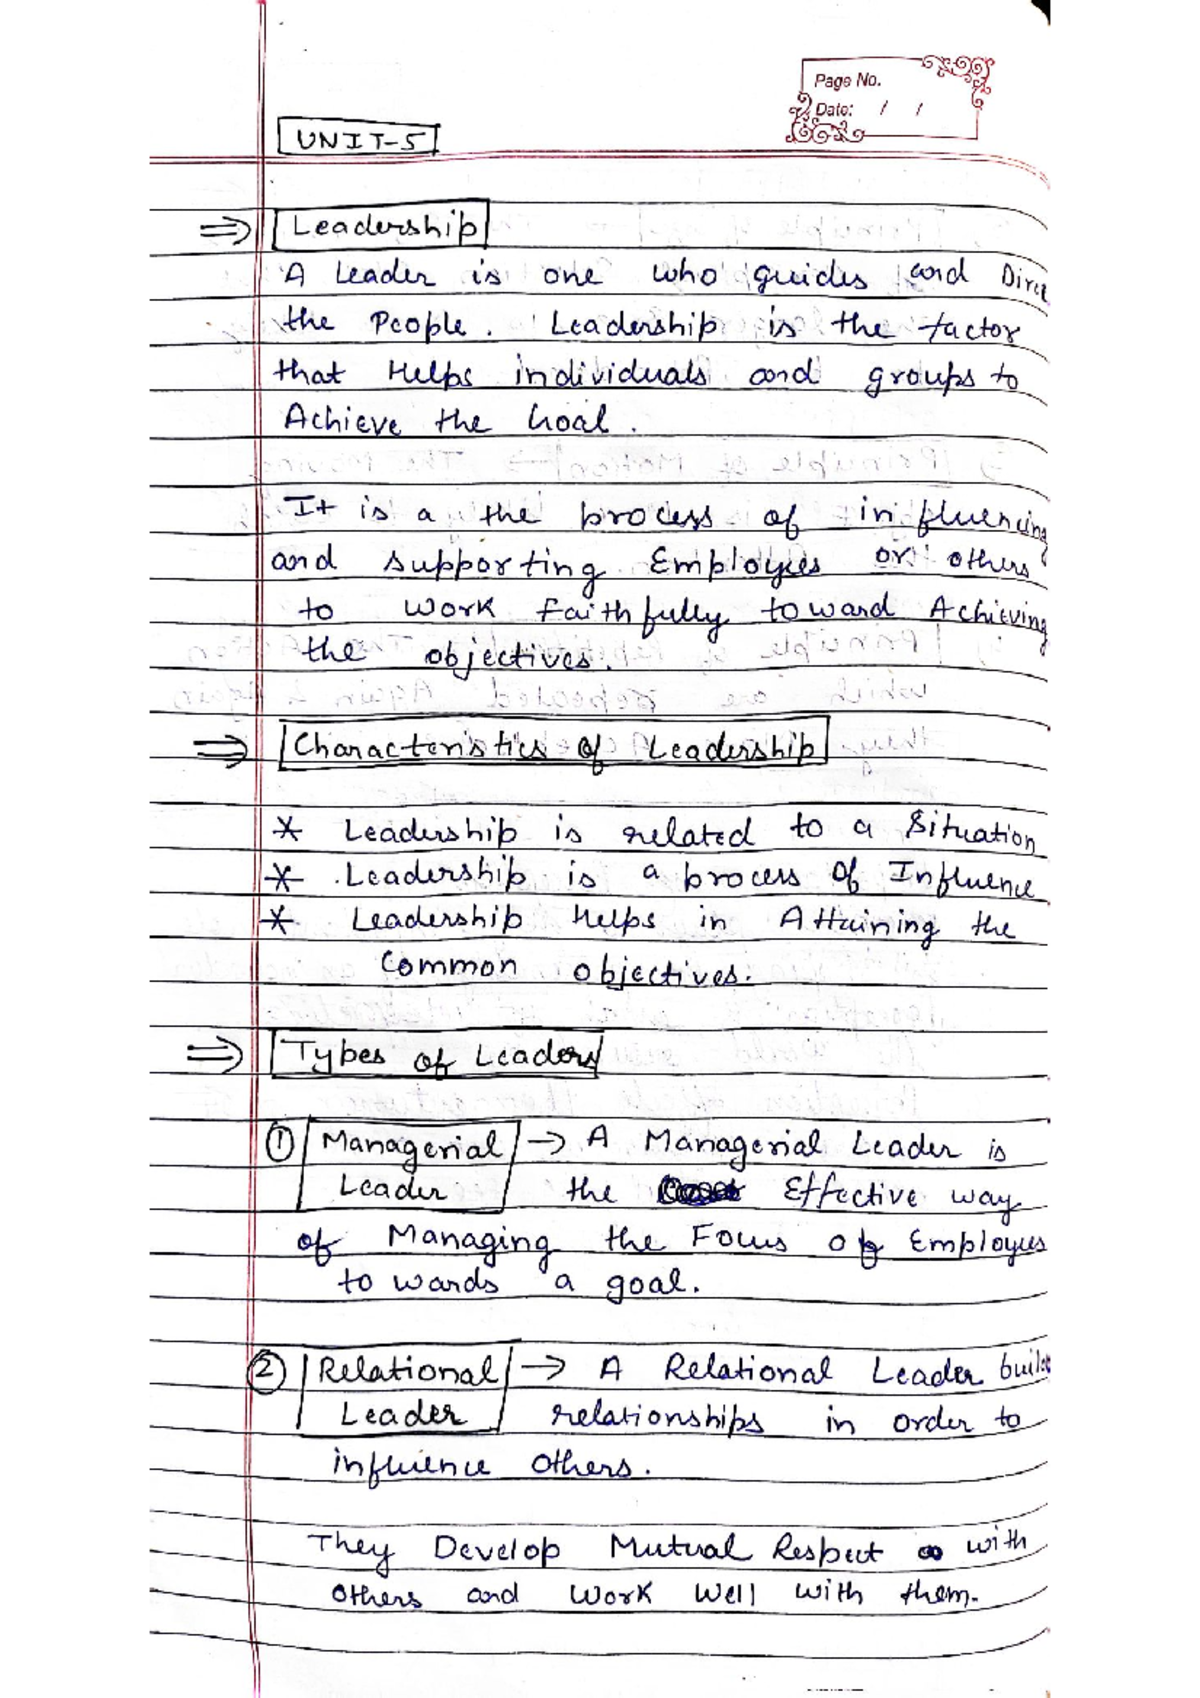 Page No.
Date: / /
UNIT-5
⇒ Leadership
A Leader is one who guides and Direct
the People. Leadership is the factor
that Helps individuals and groups to
Achieve the Goal.
It is a the process of influencing
and supporting Employees or others
to work Faithfully toward Achieving
the objectives.
⇒ Characteristics of Leadership
* Leadership is related to a Situation
* Leadership is a process of Influence
* Leadership Helps in Attaining the
Common objectives.
⇒ Types of Leaders
① Managerial Leader → A Managerial Leader is
the Effective way
of Managing the Focus of Employees
towards a goal.
② Relational Leader → A Relational Leader builds
relationships in order to
influence others.
They Develop Mutual Respect with
others and work well with them.